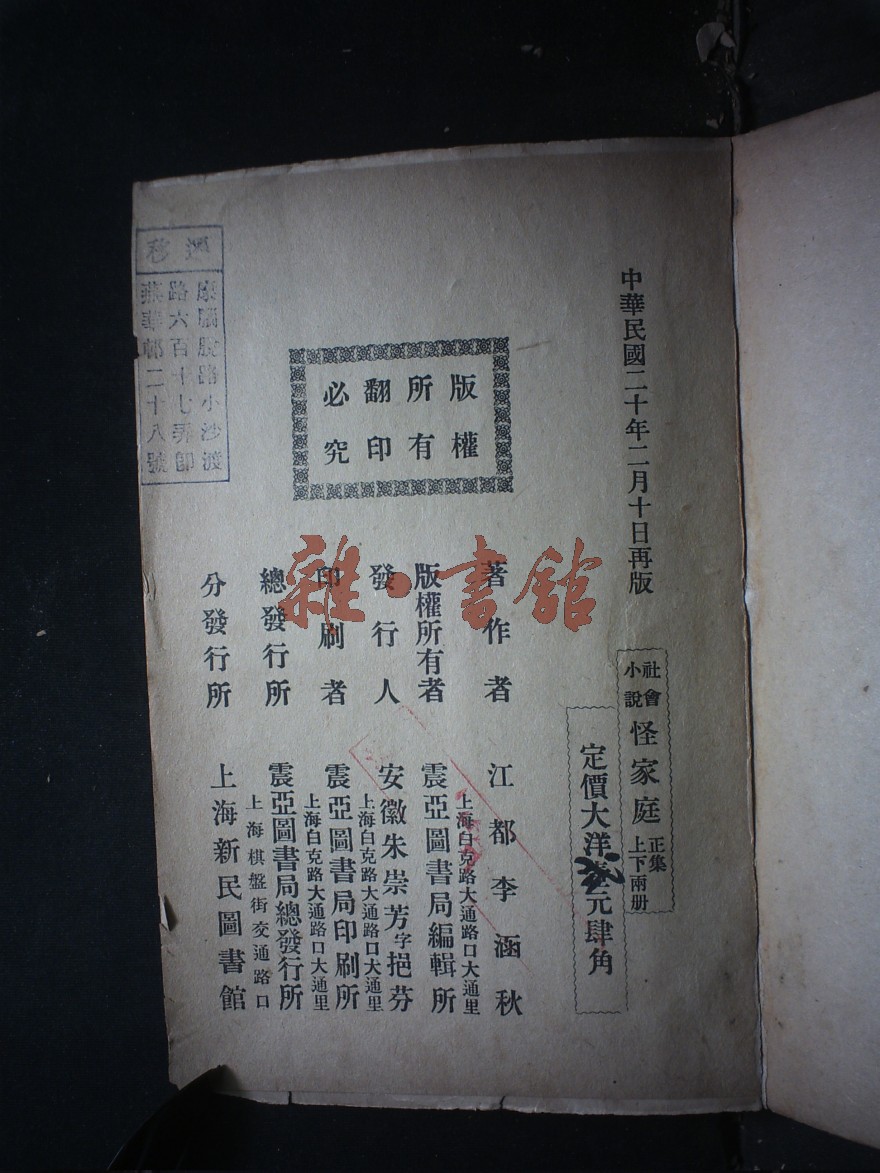 中華民國二十年二月十日再版
社會小說
怪家庭
正集
上下兩册
定價大洋元肆角
版權所有
翻印必究
著作者 江都李涵秋
版權所有者 震亞圖書局編輯所
上海白克路大通路口大通里
發行人 安徽朱崇芳字挹芬
上海白克路大通路口大通里
印刷者 震亞圖書局印刷所
上海白克路大通路口大通里
總發行所 震亞圖書局總發行所
上海棋盤街交通路口
分發行所 上海新民圖書館
遷移
康腦脫路小沙渡
路六百十七弄
華邨二十八號
雜·書館